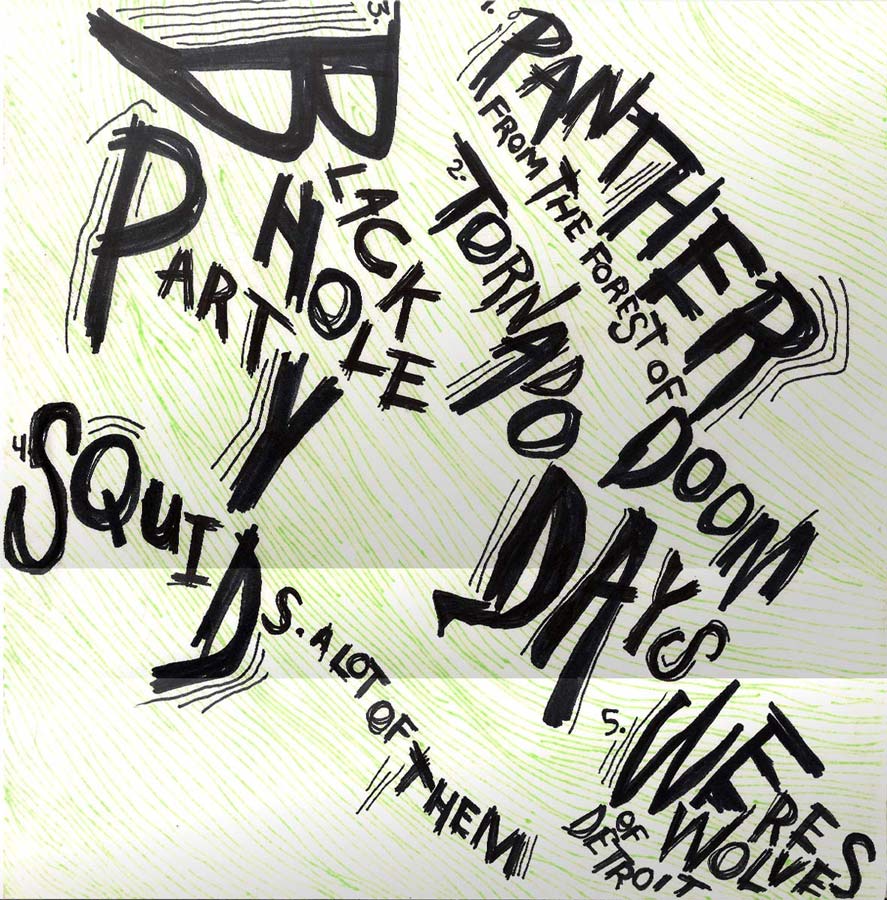 1. PANTHER
FROM THE FOREST OF DOOM
2. TORNADO DAYS
3. BLACK
HOLE
PARTY
4. SQUIDS. A LOT OF THEM
5. WERES
WOLVES
OF
DETROIT